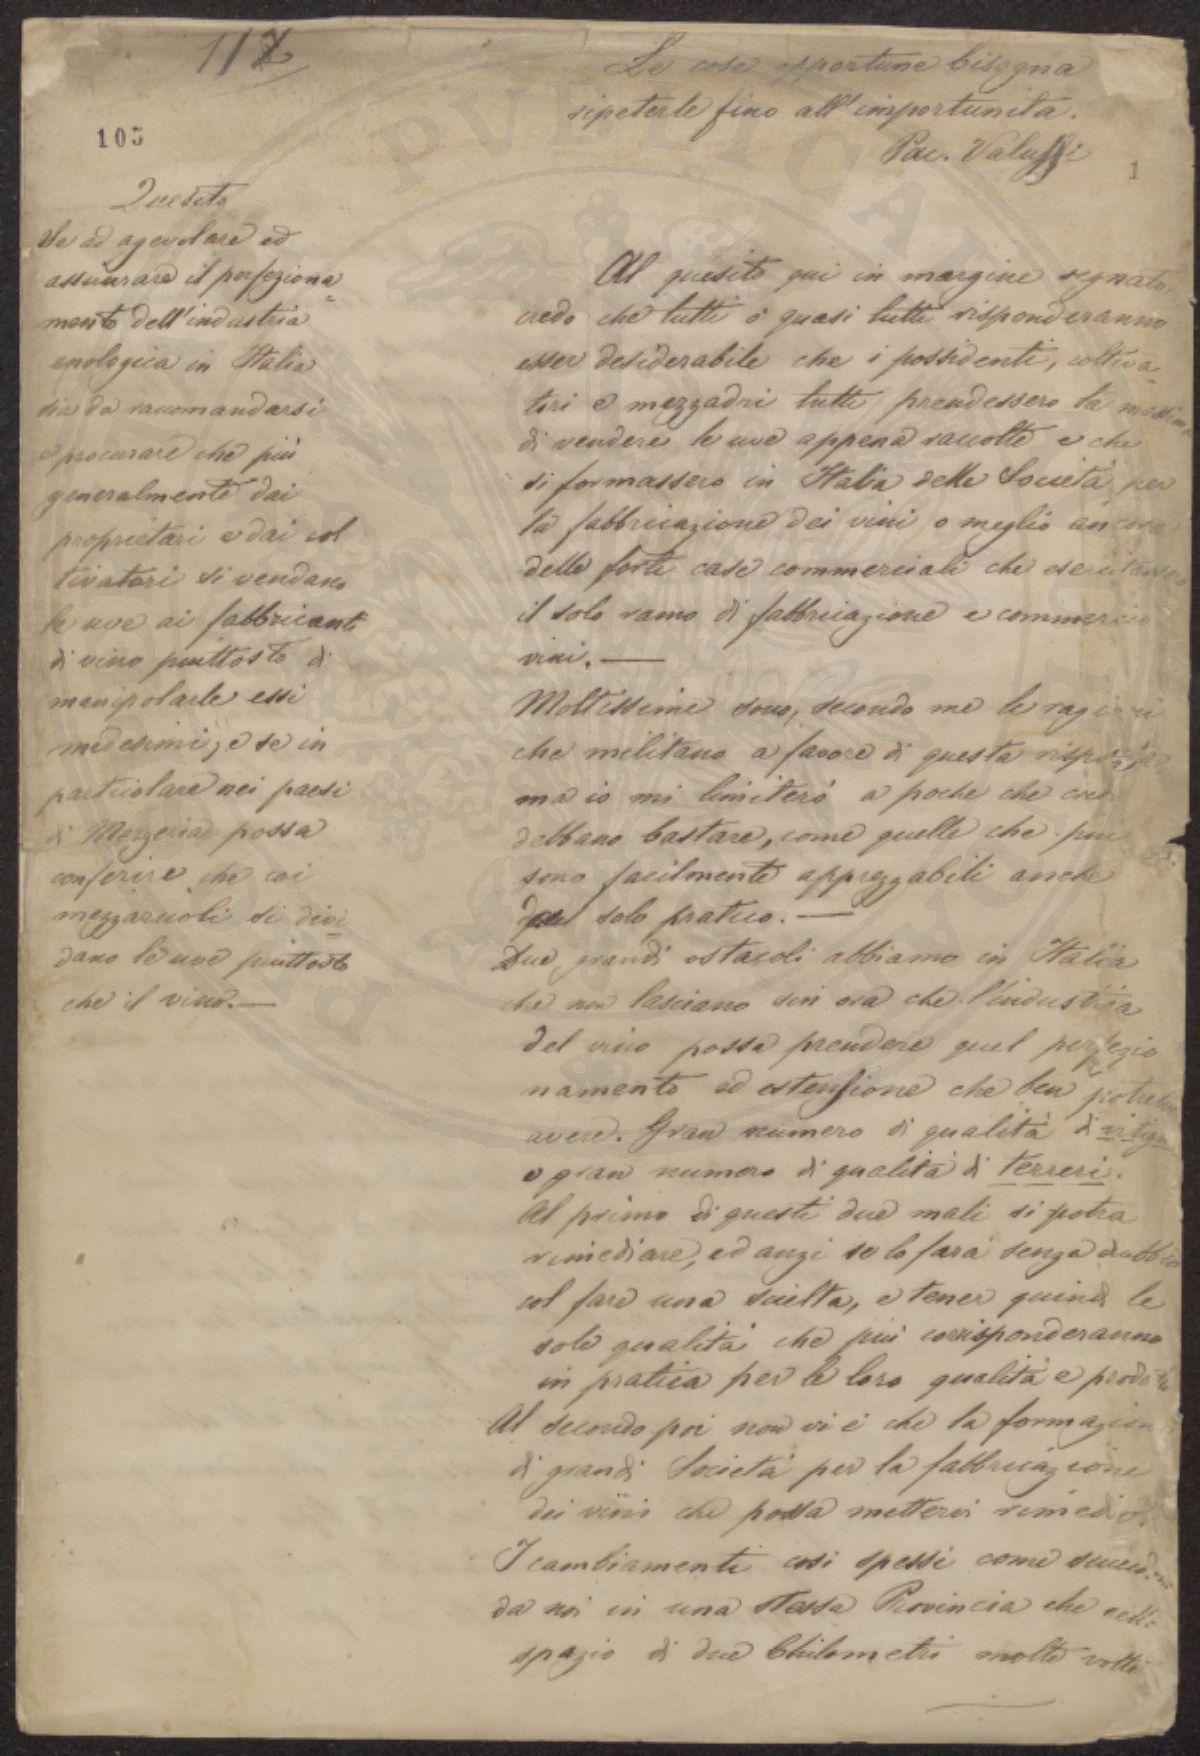 117
Le cose opportune bisogna
ripeterle fino all'importunità.
Pac. Valussi
105
1
Quesito
Se ad agevolare ed
assicurare il perfeziona=
mento dell'industria
enologica in Italia
sia da raccomandarsi
e procurare che più
generalmente dai
proprietari e dai col
tivatori si vendano
le uve ai fabbricanti
di vino piuttosto di
manipolarle essi
medesimi; e se in
particolare nei paesi
di Mezzeria possa
conferire che coi
mezzaiuoli si divi=
dano le uve piuttosto
che il vino.—
Al quesito qui in margine segnato,
credo che tutti o quasi tutti risponderanno
esser desiderabile che i possidenti, coltiva=
tori e mezzadri tutti prendessero la massima
di vendere le uve appena raccolte e che
si formassero in Italia delle Società per
la fabbricazione dei vini o meglio ancora
delle forti case commerciali che esercitassero
il solo ramo di fabbricazione e commercio
vini.—
Moltissime sono, secondo me le ragioni
che militano a favore di questa risposta,
ma io mi limiterò a poche che credo
debbano bastare, come quelle che più
sono facilmente apprezzabili anche
dal solo pratico.—
Due grandi ostacoli abbiamo in Italia
che non lasciano sin ora che l'industria
del vino possa prendere quel perfezio
namento ed estensione che ben potrebbe
avere. Gran numero di qualità di vitigni
e gran numero di qualità di terreni.
Al primo di questi due mali si potrà
rimediare, ed anzi se lo farà senza dubbio
col fare una scielta, e tener quindi le
sole qualità che più corrisponderanno
in pratica per le loro qualità e prodotto
Al secondo poi non vi è che la formazione
di grandi Società per la fabbricazione
dei vini che possa mettervi rimedio.
I cambiamenti così spessi come succedono
da noi in una stessa Provincia che nello
spazio di due Chilometri molte volte
PVBLICAE